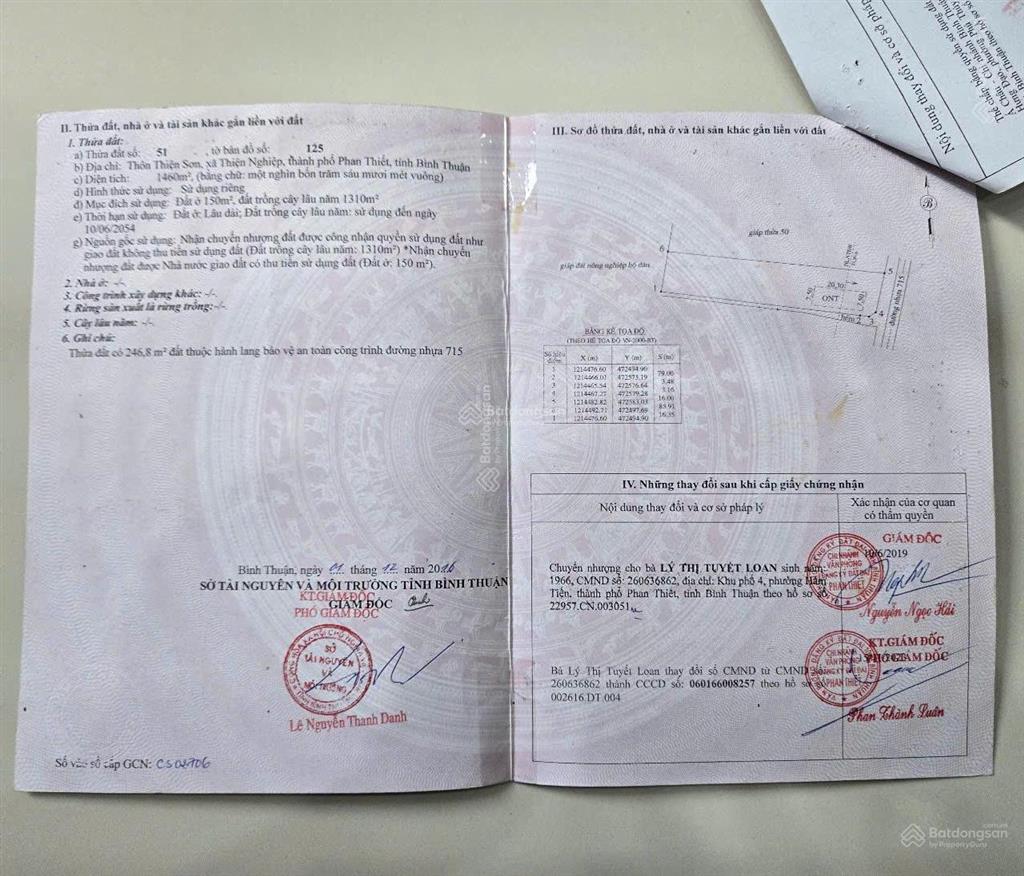 II. Thửa đất, nhà ở và tài sản khác gắn liền với đất
1. Thửa đất:
a) Thửa đất số: 51 , tờ bản đồ số: 125
b) Địa chỉ: Thôn Thiện Sơn, xã Thiện Nghiệp, thành phố Phan Thiết, tỉnh Bình Thuận
c) Diện tích: 1460m², (bằng chữ: một nghìn bốn trăm sáu mươi mét vuông)
d) Hình thức sử dụng: Sử dụng riêng
đ) Mục đích sử dụng: Đất ở 150m², đất trồng cây lâu năm 1310m²
e) Thời hạn sử dụng: Đất ở: Lâu dài; Đất trồng cây lâu năm: sử dụng đến ngày
10/06/2054
g) Nguồn gốc sử dụng: Nhận chuyển nhượng đất được công nhận quyền sử dụng đất như
giao đất không thu tiền sử dụng đất (Đất trồng cây lâu năm: 1310m²) *Nhận chuyển
nhượng đất được Nhà nước giao đất có thu tiền sử dụng đất (Đất ở: 150 m²).
2. Nhà ở: -/-
3. Công trình xây dựng khác: -/-
4. Rừng sản xuất là rừng trồng:-/-
5. Cây lâu năm: -/-
6. Ghi chú:
Thửa đất có 246,8 m² đất thuộc hành lang bảo vệ an toàn công trình đường nhựa 715
Bình Thuận, ngày 01 tháng 12 năm 2016
SỞ TÀI NGUYÊN VÀ MÔI TRƯỜNG TỈNH BÌNH THUẬN
KT.GIÁM ĐỐC
GIÁM ĐỐC
PHÓ GIÁM ĐỐC
SỞ
TÀI NGUYÊN
VÀ
MÔI TRƯỜNG
Lê Nguyễn Thanh Danh
Số vào sổ cấp GCN: CS02706
III. Sơ đồ thửa đất, nhà ở và tài sản khác gắn liền với đất
B
giáp thửa 50
giáp đất nông nghiệp bộ đàn
6
5
1
20,30
7,50
ONT
7,50
4
hẻm 2 3
đường nhựa 715
BẢNG KÊ TỌA ĐỘ
(THEO HỆ TỌA ĐỘ VN-2000-BT)
Số hiệu điểm X (m) Y (m) S (m)
1 1214476.60 472494.90
79.06
2 1214466.03 472573.19
3.48
3 1214465.54 472576.64
3.16
4 1214467.27 472579.28
16.06
5 1214482.82 472583.03
85.91
1214492.71 472497.69
16.35
1 1214476.60 472494.90
IV. Những thay đổi sau khi cấp giấy chứng nhận
Nội dung thay đổi và cơ sở pháp lý
Xác nhận của cơ quan
có thẩm quyền
Chuyển nhượng cho bà LÝ THỊ TUYẾT LOAN sinh năm:
1966, CMND số: 260636862, địa chỉ: Khu phố 4, phường Hàm
Tiến, thành phố Phan Thiết, tỉnh Bình Thuận theo hồ sơ số
22957.CN.003051
GIÁM ĐỐC
/6/2019
CHI NHÁNH
VĂN PHÒNG
ĐĂNG KÝ ĐẤT ĐAI
PHAN THIẾT
Nguyễn Ngọc Hải
Bà Lý Thị Tuyết Loan thay đổi số CMND từ CMND số:
260636862 thành CCCD số: 060166008257 theo hồ sơ số
002616.DT.004
KT.GIÁM ĐỐC
PHÓ GIÁM ĐỐC
CHI NHÁNH
VĂN PHÒNG
ĐĂNG KÝ ĐẤT ĐAI
PHAN THIẾT
Phan Thành Luân
Nội dung thay đổi và cơ sở pháp
Thế chấp bằng quyền sử
Á Châu - Chi nhánh Bình Thuận
Batdongsan
by PropertyGuru
Batdongsan
.com.vn
by PropertyGuru